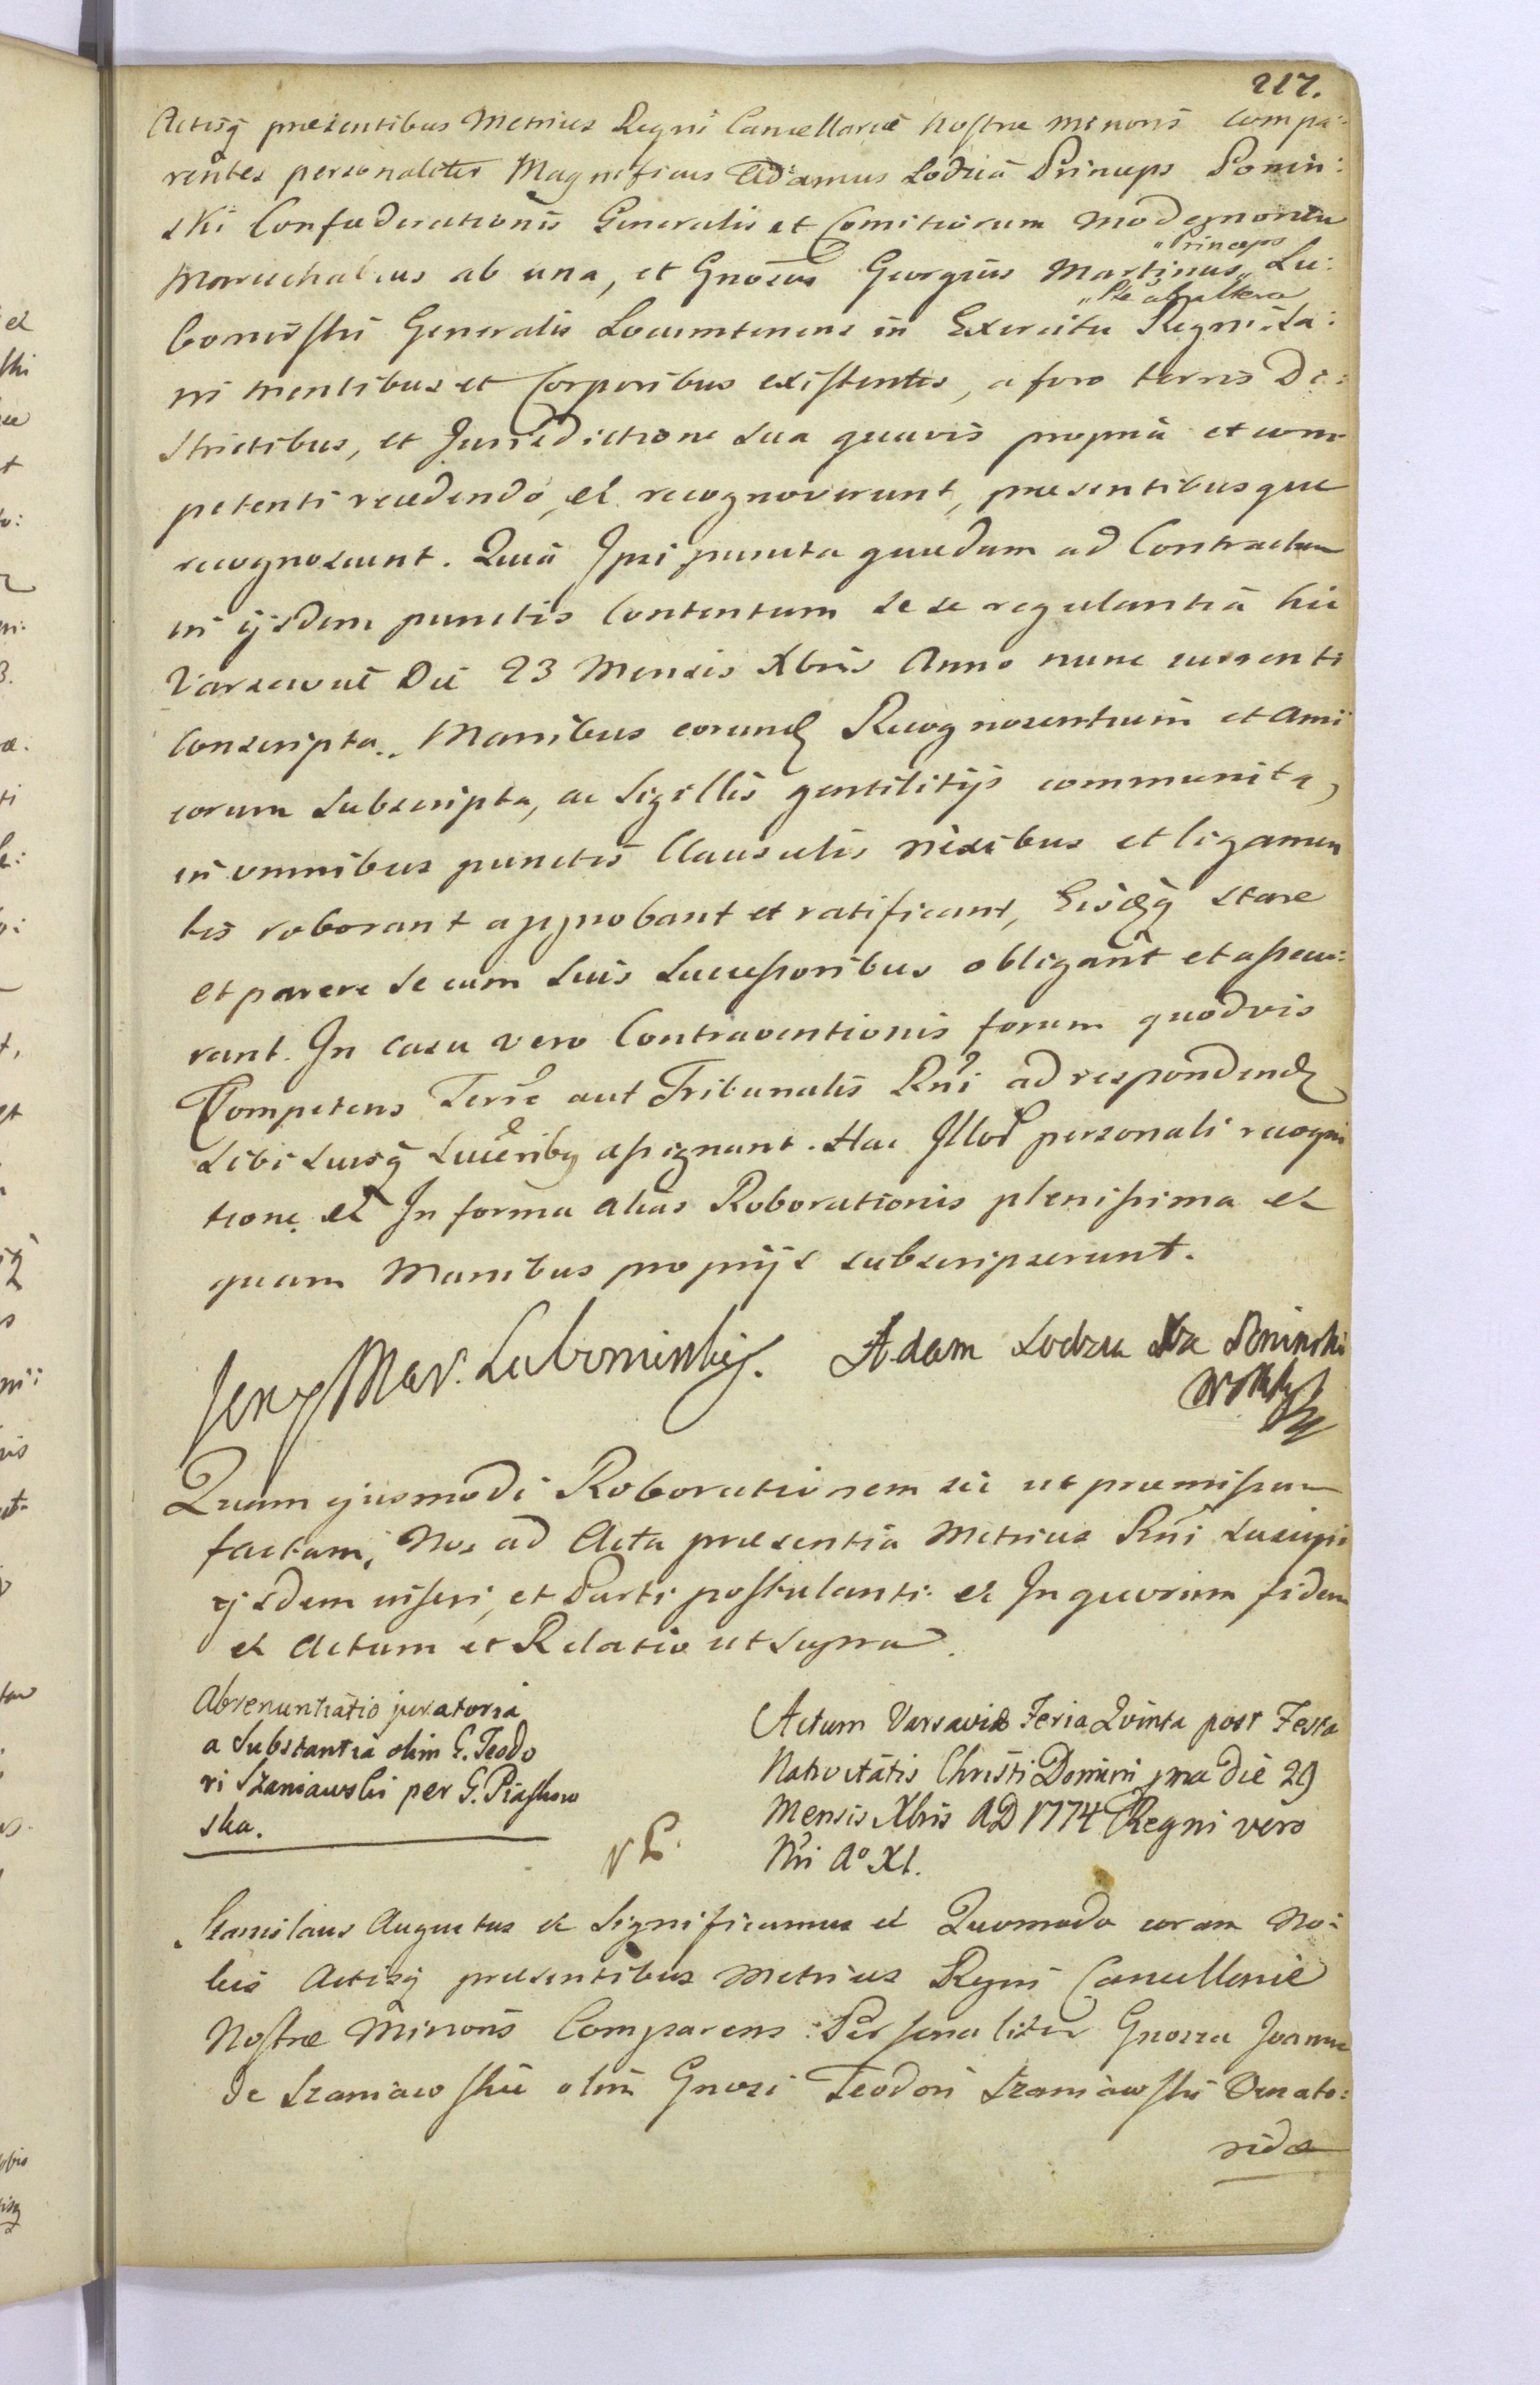 217.
Actisq̃ praesentibus Metrices Regni Cancellariae Nostrae minoris Compa:
rentes personaliter Magnificus Adamus Lodzia Princeps Ponin:
ski Confaederationis Generalis et Comitiorum modernorum
„Princeps
Mareschalcus ab una, et Gnõsus Georgius Martinus „ Lu:
„Pte ab altera
bomirski Generalis Locumtenens in Exercitu Regni „ Sa:
ni mentibus et Corporibus existentes, a foro terris Di:
strictibus, et Jurisdictione sua quavis propria et com
petenti recedendo, et recognoverunt, praesentibusque
recognoscunt. Quia Ipsi puncta quaedam ad Contractum
in ijsdem punctis Contentum sese regulantia hic
Varsaviae Die 23 Mensis Xbris Anno nunc currenti
Conscripta „ Manibus eorund Recognoscentium et Ami
corum subscripta, ac Sigillis gentilitijs communita,
in omnibus punctis Clausulis nexibus et ligamen
tis roborant approbant et ratificant, Eisdq̃ stare
et parere se cum suis Successoribus obligant et assecu:
rant. In casu vero Contraventionis forum quodvis
Competens Terrẽ aut Tribunalis Rñi ad respondend
sibi suisq̃ Succeribq assignant. Hac Illor personali recogni
tione et In forma alias Roborationis plenissima et
quam Manibus proprijs subscripserunt.
Jerzy Mar. Lubomirski. Adam Lodzia Xze Poninski
Quam ejusmodi Roborationem sic ut praemissum
factam, Nos ad Acta praesentia Metrices Rñi suscipi
ijsdem inseri, et Parti postulanti et In quorum fidem
et Actum et Relatio ut supra.
Abrenuntiatio juratoria
a Substantia olim G. Teodo
ri Szaniawski per G. Piaskow
ska.
Actum Varsaviae Feria Quinta post Festa
Nativitatis Christi Domini pma die 29
Mensis Xbris AD 1774 Regni vero
Nri A° XI.
Stanislaus Augustus et Significamus et Quomodo coram No:
bis Actisq̃ praesentibus Metrices Regni Cancellariae
Nostrae Minoris Comparens Personaliter Gnosa Joanna
de Szaniawskie olim Gnosi Teodori Szaniawski Venato:
ridae